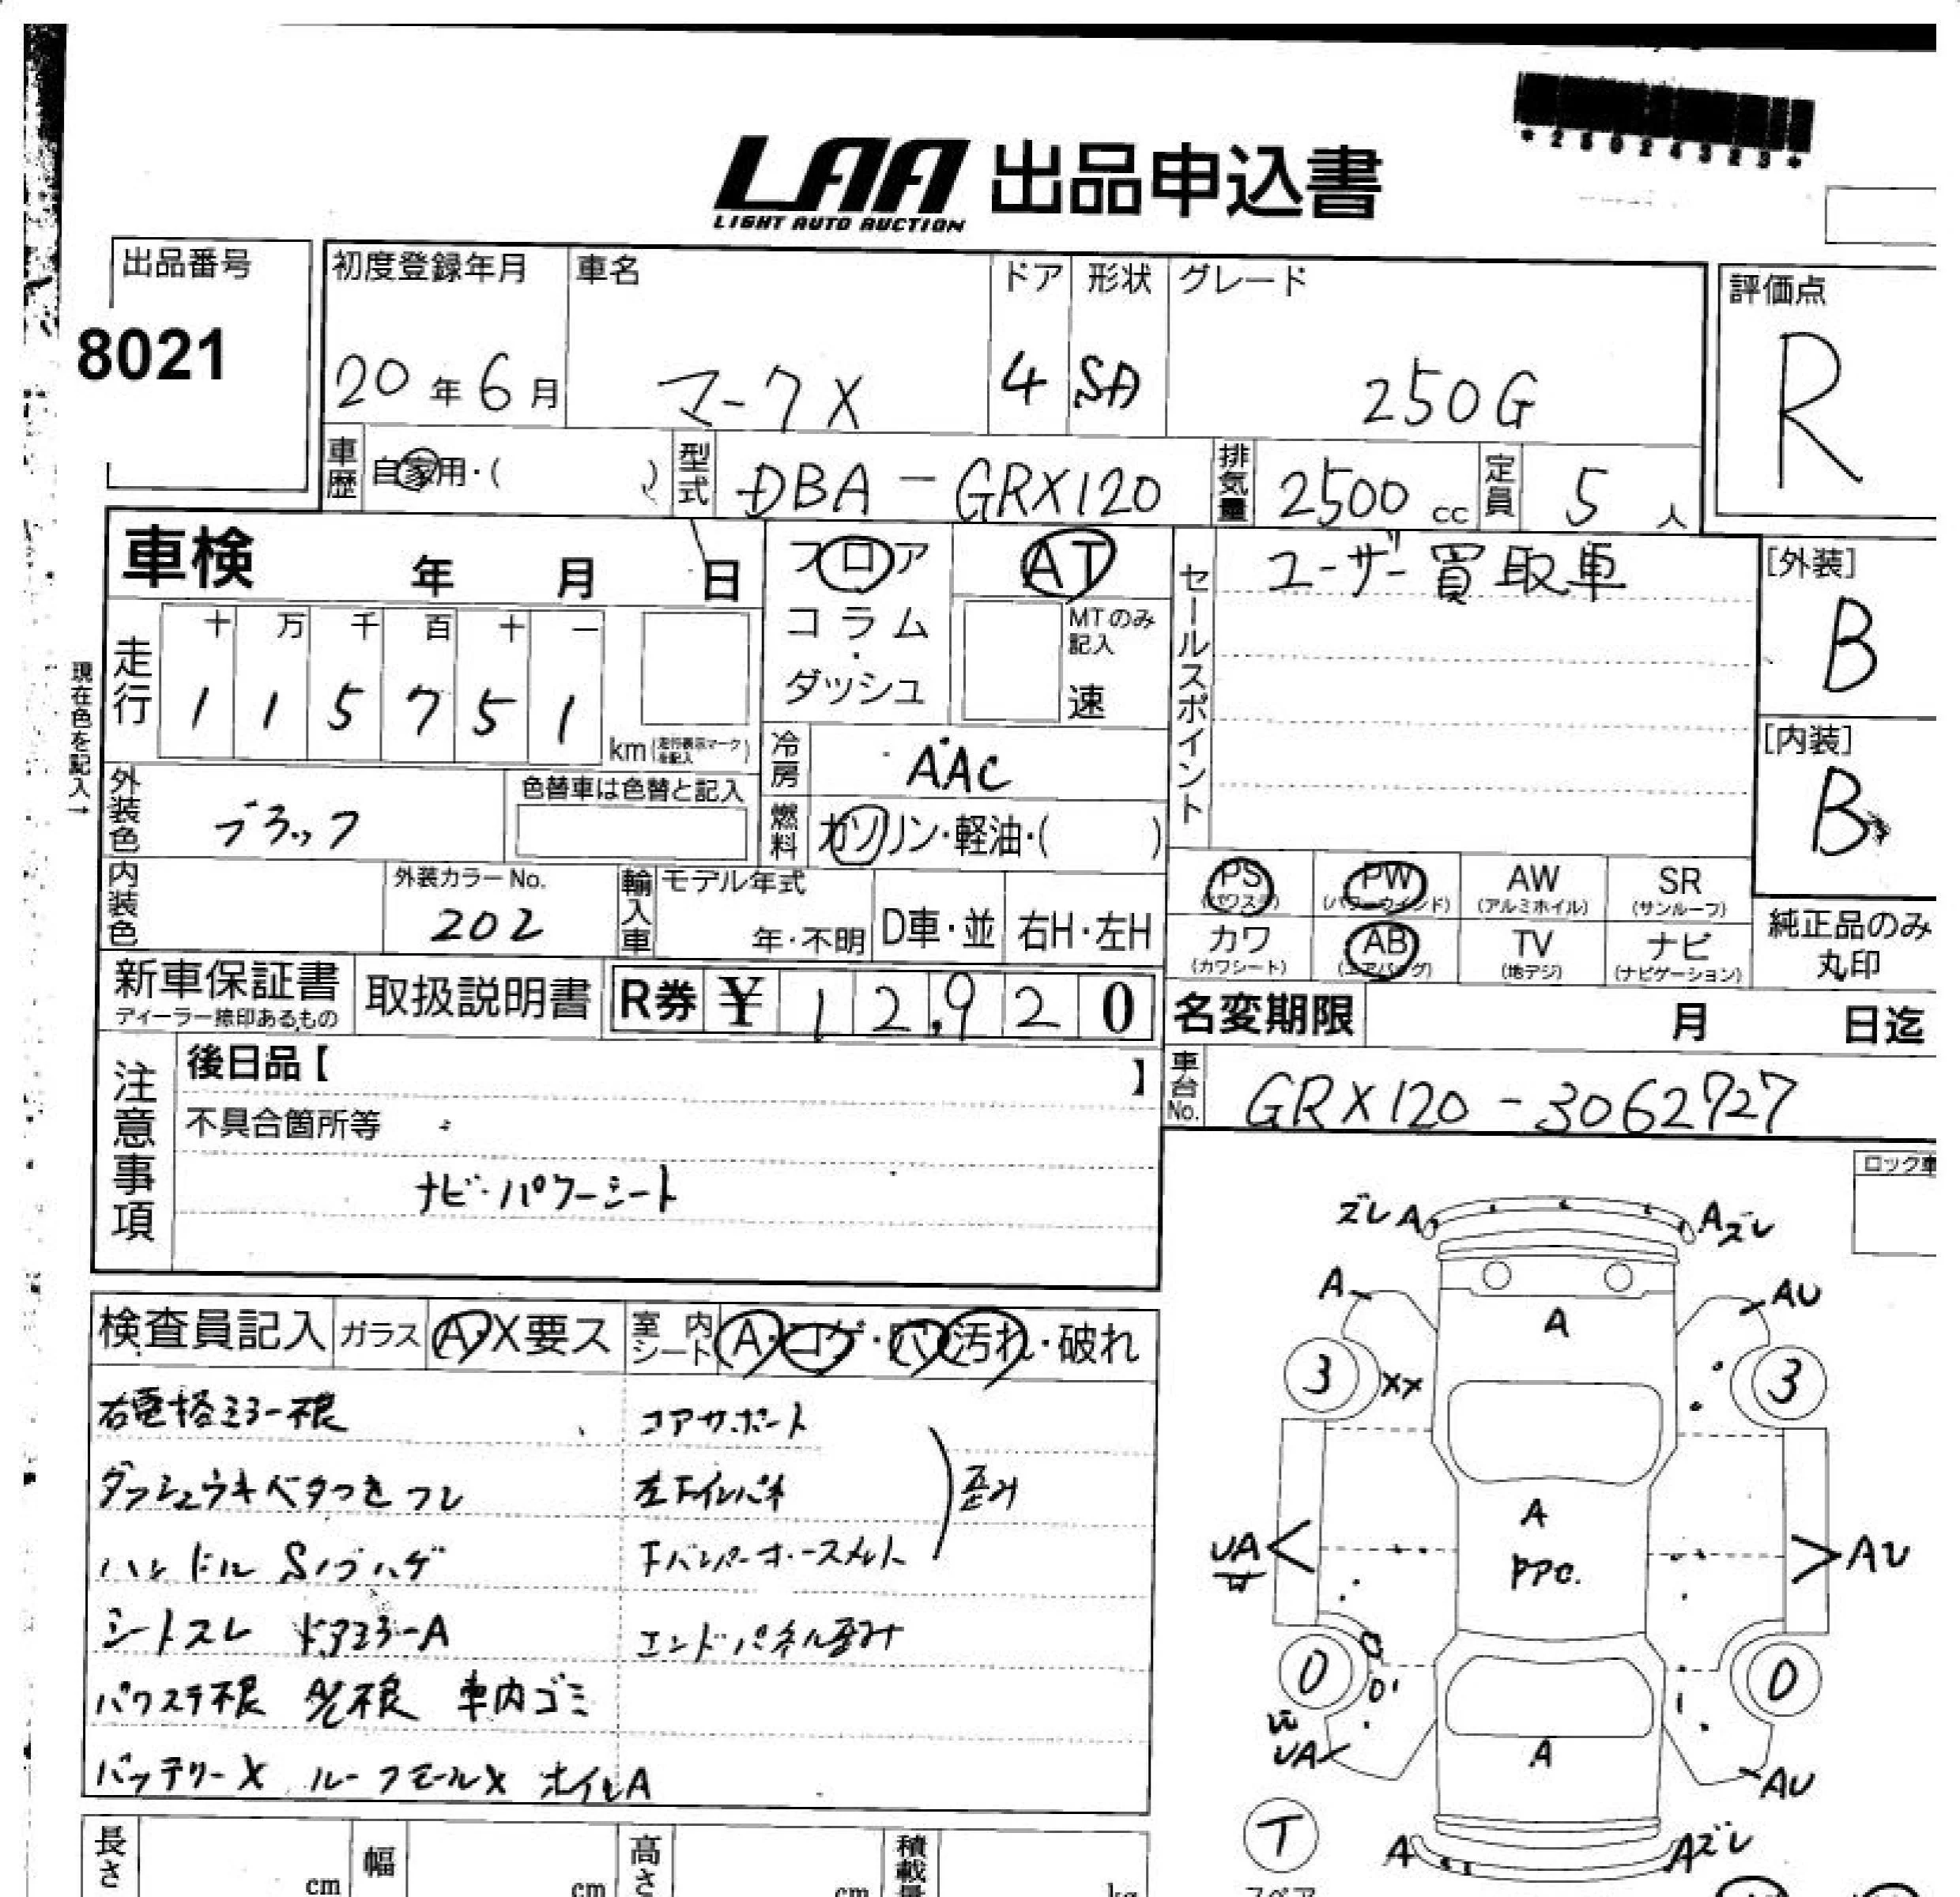 *25024323*
LAA 出品申込書
LIGHT AUTO AUCTION
出品番号
8021
初度登録年月
20年6月
車名
マークX
ドア
4
形状
SD
グレード
250G
評価点
R
車歴
自家用・( )
型式
DBA-GRX120
排気量
2500cc
定員
5人
車検 年 月 日
フロア
コラム
・
ダッシュ
AT
MTのみ
記入
速
セールスポイント
ユーザー買取車
[外装]
B
[内装]
B
現在色を記入→
走行
十 万 千 百 十 一
1 1 5 7 5 1
km(走行表示マークを記入)
冷房
AAC
外装色
ブラック
色替車は色替と記入
燃料
ガソリン・軽油・( )
内装色
外装カラーNo.
202
輸入車
モデル年式
年・不明
D車・並
右H・左H
PS
(パワステ)
PW
(パワーウインド)
AW
(アルミホイル)
SR
(サンルーフ)
カワ
(カワシート)
AB
(エアバッグ)
TV
(地デジ)
ナビ
(ナビゲーション)
純正品のみ
丸印
新車保証書
ディーラー捺印あるもの
取扱説明書
R券 ¥12,920
名変期限 月 日迄
注意事項
後日品【 】
不具合箇所等
ナビ・パワーシート
車台No.
GRX120-3062727
ロック車
検査員記入
ガラス
A・X要ス
室内
シート
A・コゲ・穴・汚れ・破れ
右電格ミラー不良
コアサポート
ダッシュウキベタつきスレ
歪み
ハンドル Sノブハゲ
シートスレ ドアミラーA
エンドパネル歪み
パワステ不良 A/C不良 車内ゴミ
バッテリーX ルーフモールX ホイルA
ズレ A
A ズレ
A
AU
A
3
XX
3
A
PPC.
UA
W
AU
0
0
UA
A
AU
T
A
Aズレ
スペア
長さ
cm
幅
cm
高さ
cm
積載量
kg